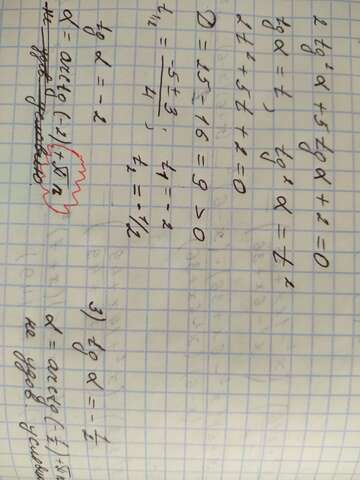 2 tg²α + 5 tgα + 2 = 0
tgα = t, tg²α = t²
2t² + 5t + 2 = 0
D = 25 - 16 = 9 > 0
t₁,₂ = (-5 ± 3)/4 ; t₁ = -2
t₂ = -1/2
tg α = -2
α = arctg (-2) + πn
не удов.
3) tg α = -1/2
α = arctg (-1/2) + πn
не удов условию